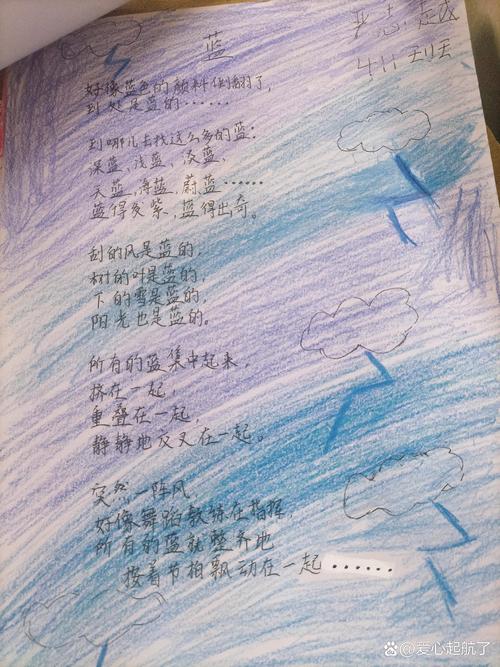 蓝
好像蓝色的颜料倒翻了,
到处是蓝的······
到哪儿去找这么多的蓝:
深蓝、浅蓝、
天蓝、海蓝、蔚蓝······
蓝得发紫,蓝得出奇。
刮的风是蓝的,
树的叶是蓝的,
下的雪是蓝的,
阳光也是蓝的。
所有的蓝集中起来,
挤在一起,
重叠在一起,
静静地交叉在一起。
突然,一阵风,
好像舞蹈教练在指挥,
所有的蓝就整齐地
按着节拍飘动在一起······
爱心起航了